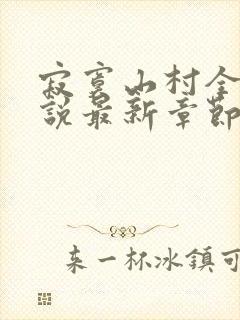 寂寞山村全
說最新章節
来一杯冰鎮可